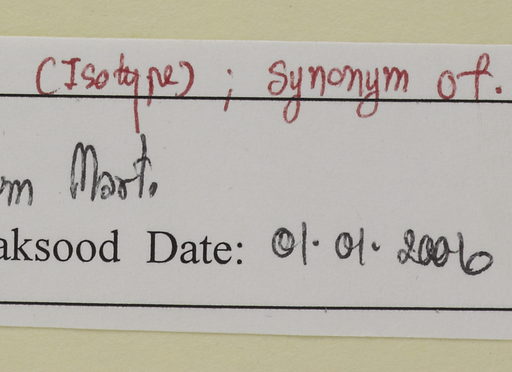 (Isotype) ; Synonym of.
m Mart.
aksood Date: 01. 01. 2006